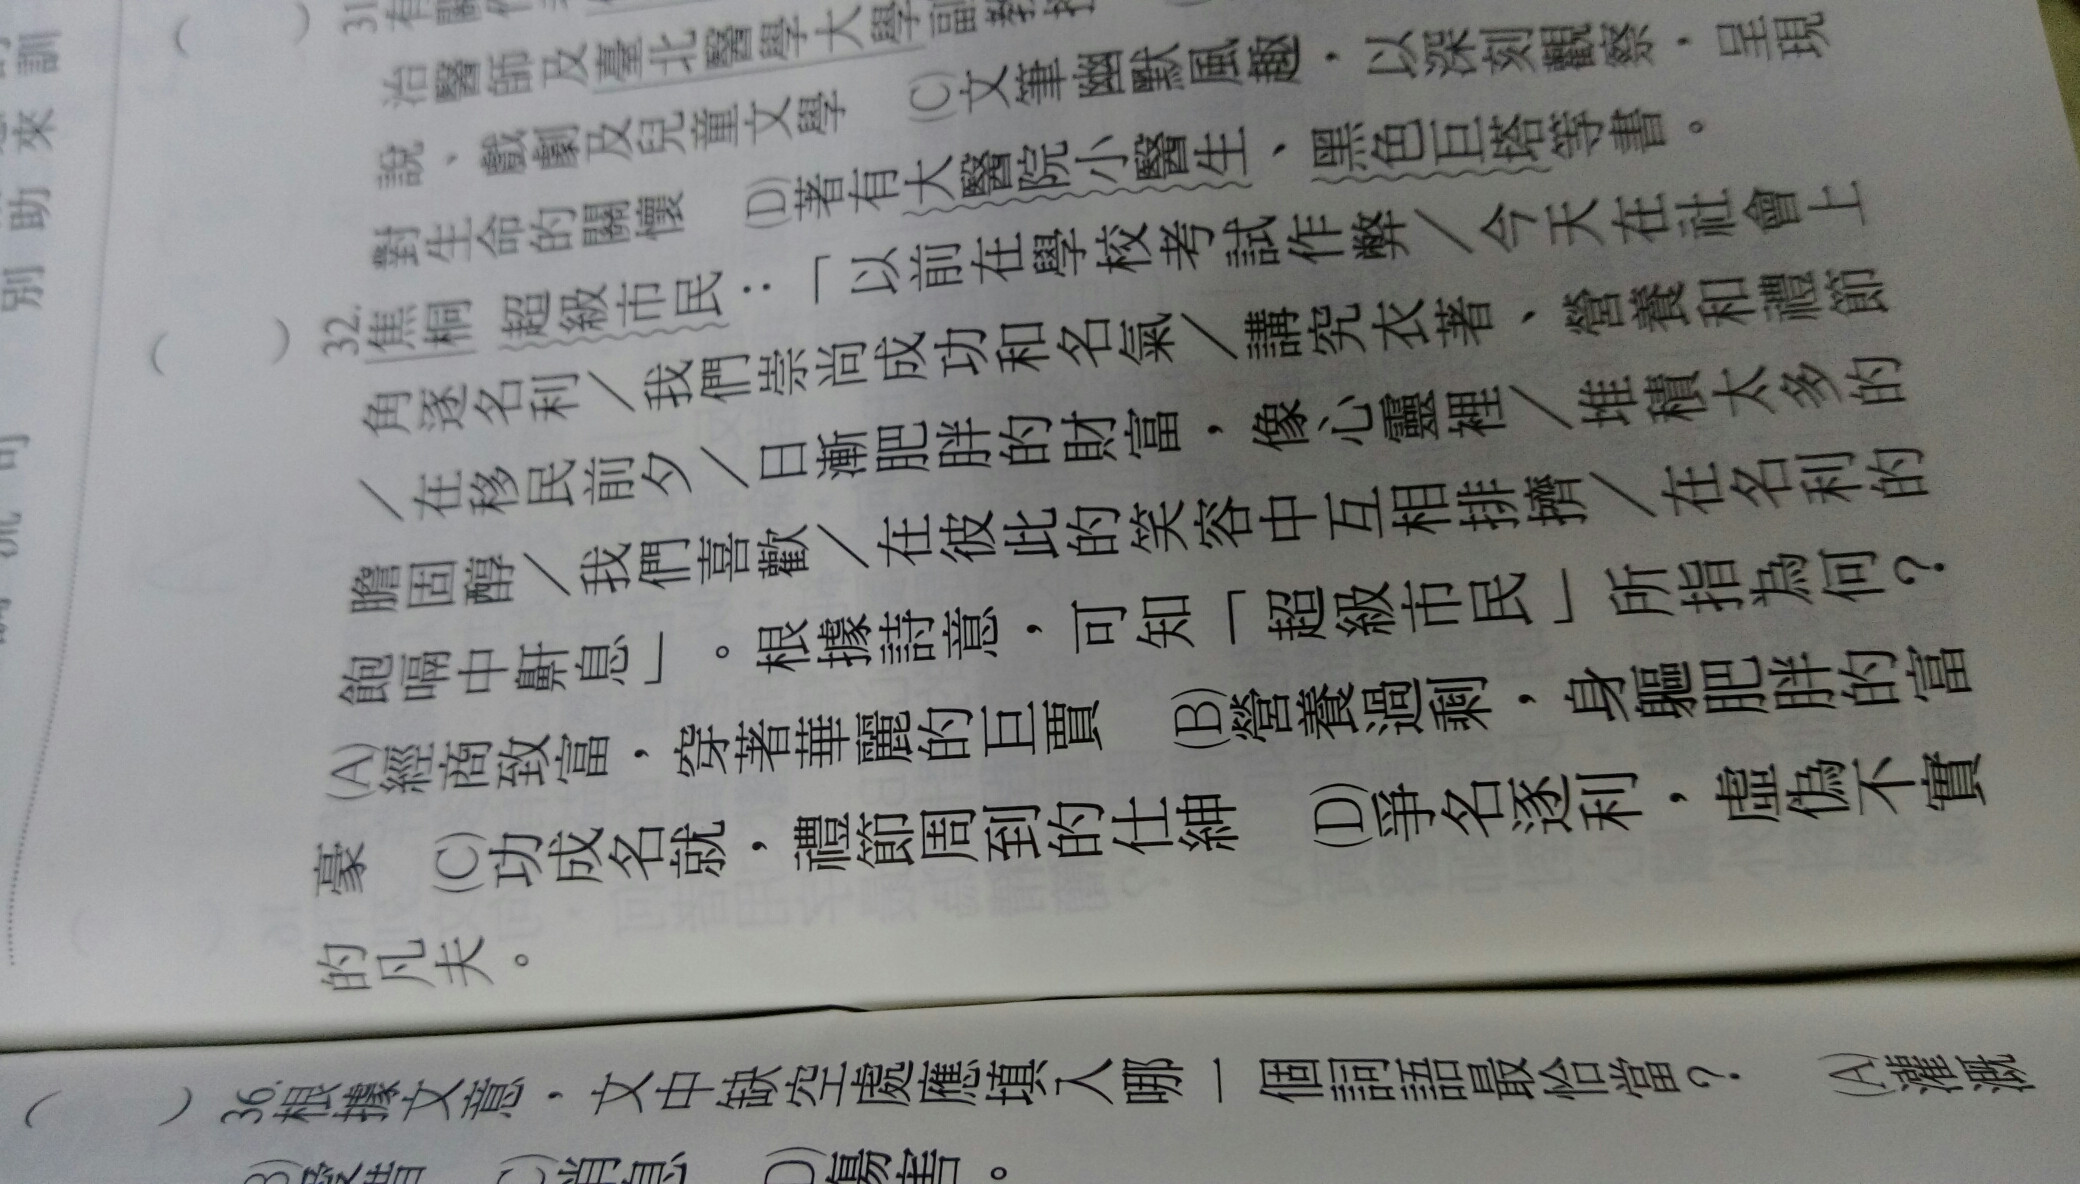 來訓
別助
31.有關作
治醫師及臺北醫學大學副教
說、戲劇及兒童文學 (C)文筆幽默風趣，以深刻觀察，呈現
對生命的關懷 (D)著有大醫院小醫生、黑色巨塔等書。
( ) 32.焦桐 超級市民：「以前在學校考試作弊／今天在社會上
角逐名利／我們崇尚成功和名氣／講究衣著、營養和禮節
／在移民前夕／日漸肥胖的財富，像心靈裡／堆積太多的
膽固醇／我們喜歡／在彼此的笑容中互相排擠／在名利的
飽嗝中鼾息」。根據詩意，可知「超級市民」所指為何？
(A)經商致富，穿著華麗的巨賈 (B)營養過剩，身軀肥胖的富
豪 (C)功成名就，禮節周到的仕紳 (D)爭名逐利，虛偽不實
的凡夫。
( ) 36.根據文意，文中缺空處應填入哪一個詞語最恰當？ (A)灌溉
(C)消息 (D)傷害。